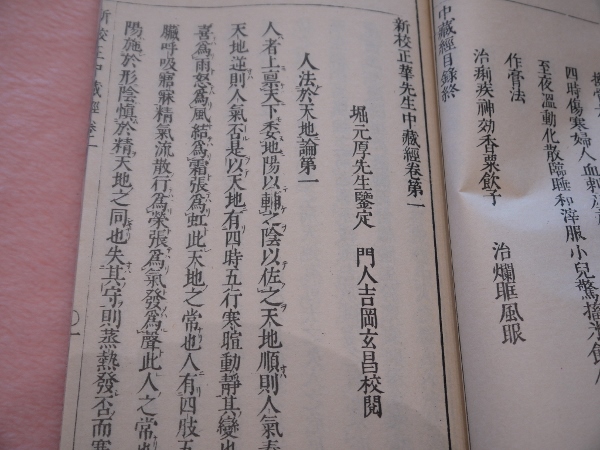 四時傷寒婦人血
至夜溫動化散臨睡和滓服小兒驚搐
作膏法
治痢疾神効香粟飲子　治爛眶風眼
中藏經目錄終
新校正華先生中藏經卷第一
堀元厚先生鑒定　門人吉岡玄昌校閱
人法於天地論第一
人者上稟天下委地陽以輔之陰以佐之天地順則人氣泰
天地逆則人氣否是以天地有四時五行寒暄動靜其變也
喜為雨怒為風結為霜張為虹此天地之常也人有四肢五
臟呼吸寤寐精氣流散行為榮張為氣發為聲此人之常也
陽施於形陰慎於精天地之同也失其守則蒸熱發否而寒
新校正中藏經卷一
〇一